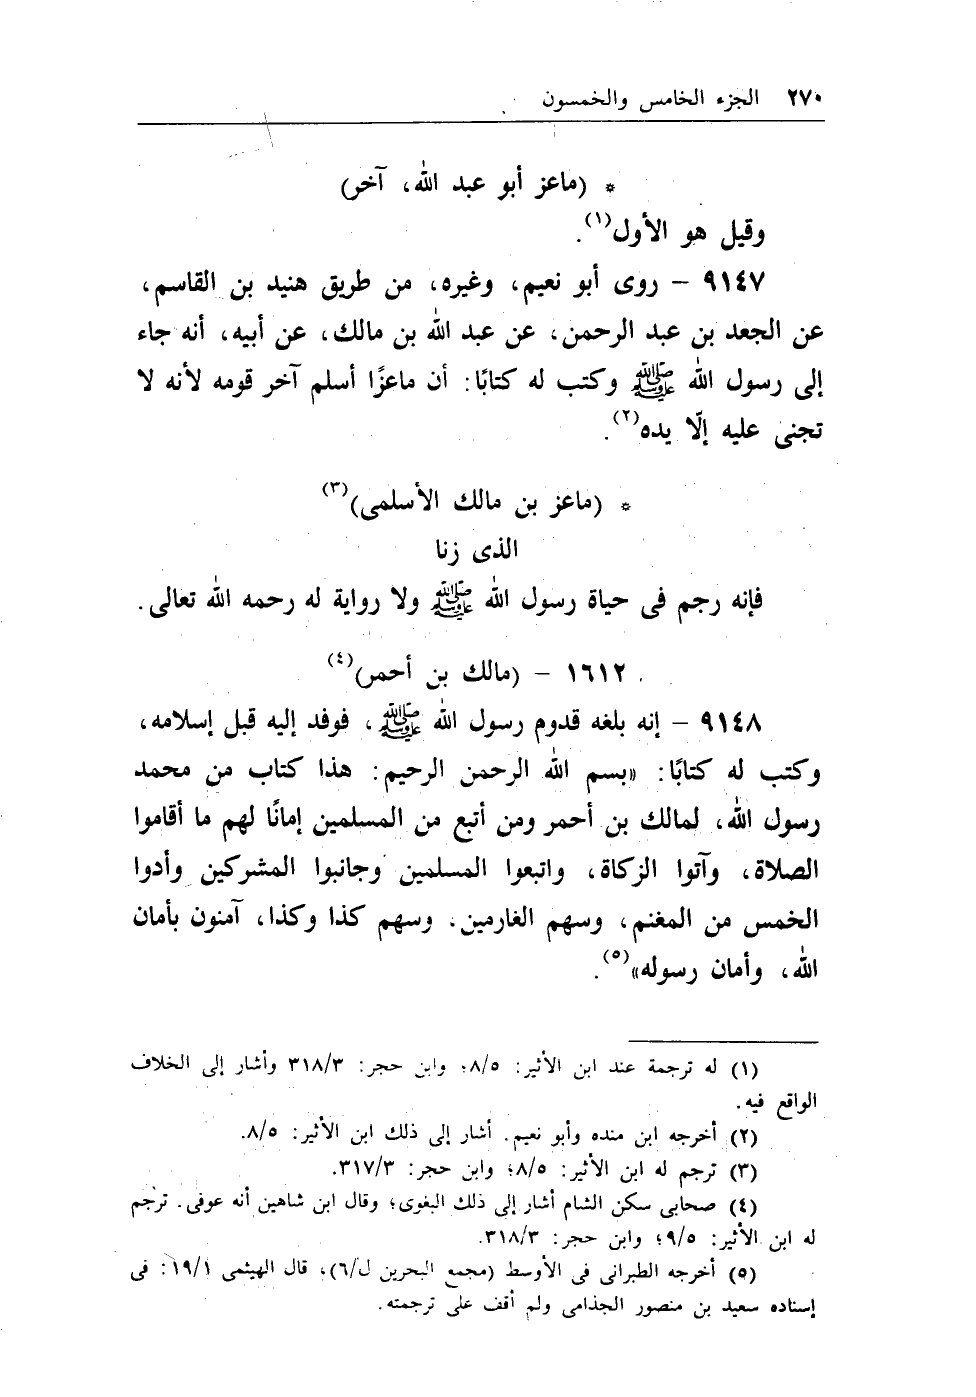 ٢٧٠ الجزء الخامس والخمسون
* (ماعز أبو عبد الله، آخر)
وقيل هو الأول(١).
٩١٤٧ - روى أبو نعيم، وغيره، من طريق هنيد بن القاسم،
عن الجعد بن عبد الرحمن، عن عبد الله بن مالك، عن أبيه، أنه جاء
إلى رسول الله ﷺ وكتب له كتابًا: أن ماعزًا أسلم آخر قومه لأنه لا
تجنى عليه إلّا يده(٢).
* (ماعز بن مالك الأسلمى)(٣)
الذى زنا
فإنه رجم فى حياة رسول الله ﷺ ولا رواية له رحمه الله تعالى.
١٦١٢ - (مالك بن أحمر)(٤)
٩١٤٨ - إنه بلغه قدوم رسول الله ﷺ، فوفد إليه قبل إسلامه،
وكتب له كتابًا: «بسم الله الرحمن الرحيم: هذا كتاب من محمد
رسول الله، لمالك بن أحمر ومن أتبع من المسلمين إمانًا لهم ما أقاموا
الصلاة، وآتوا الزكاة، واتبعوا المسلمين وجانبوا المشركين وأدوا
الخمس من المغنم، وسهم الغارمين. وسهم كذا وكذا، آمنون بأمان
الله، وأمان رسوله»(٥).
(١) له ترجمة عند ابن الأثير: ٨/٥؛ وابن حجر: ٣١٨/٣ وأشار إلى الخلاف
الواقع فيه.
(٢) أخرجه ابن منده وأبو نعيم. أشار إلى ذلك ابن الأثير: ٨/٥.
(٣) ترجم له ابن الأثير: ٨/٥؛ وابن حجر: ٣١٧/٣.
(٤) صحابى سكن الشام أشار إلى ذلك البغوى؛ وقال ابن شاهين أنه عوفى. ترجم
له ابن الأثير: ٩/٥؛ وابن حجر: ٣١٨/٣.
(٥) أخرجه الطبرانى فى الأوسط (مجمع البحرين ل/٦)، قال الهيثمى ١٩/١: فى
إسناده سعيد بن منصور الجذامى ولم أقف على ترجمته.